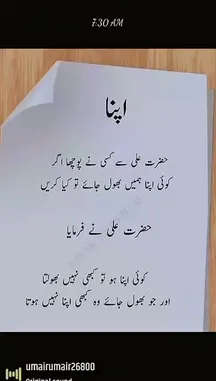 7:30 AM
اپنا
حضرت علی سے کسی نے پوچھا اگر
کوئی اپنا ہمیں بھول جائے تو کیا کریں
حضرت علی نے فرمایا
کوئی اپنا ہو تو کبھی نہیں بھولتا
اور جو بھول جائے وہ کبھی اپنا نہیں ہوتا
umairumair26800
Original sound